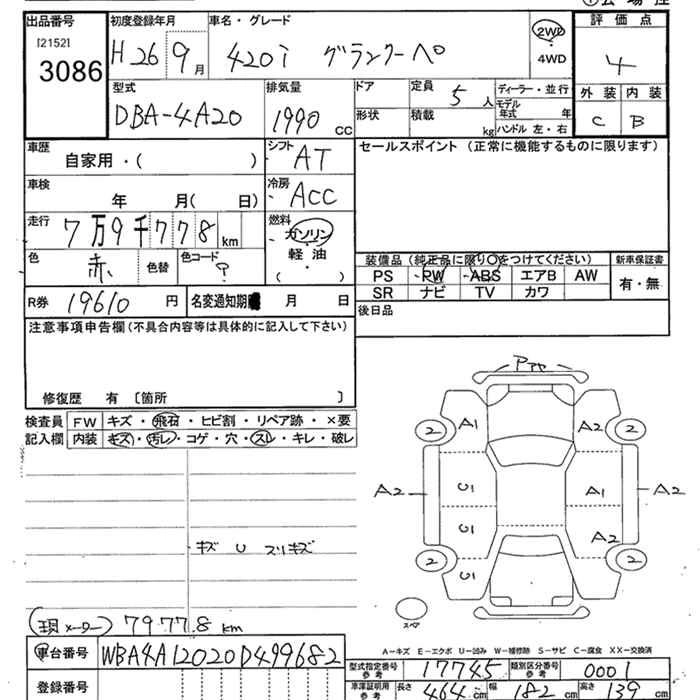 出品番号 初度登録年月 車名・グレード 評価点
[2152]
3086
H26 9月 420i グランクーペ 2WD・4WD 4
外装 内装
C B
型式 排気量 ドア 定員 ディーラー・並行
DBA-4A20 1990cc 5人 モデル年式 年
形状 積載 kg ハンドル 左・右
車歴 シフト セールスポイント (正常に機能するものに限ります)
自家用・( ) AT
車検 冷房
年 月( 日) ACC
走行 燃料
7万9千778km ガソリン・軽油・( )
色 色替 色コード
赤 ?
装備品 (純正品に限り○をつけてください) 新車保証書
PS PW ABS エアB AW 有・無
SR ナビ TV カワ
R券 19610円 名変通知期 月 日 後日品
注意事項申告欄(不具合内容等は具体的に記入して下さい)
修復歴 有 [箇所 ]
検査員記入欄 FW キズ・飛石・ヒビ割・リペア跡・×要
内装 キズ・汚レ・コゲ・穴・スレ・キレ・破レ
2 A1 A2 2
A2 U1 A1 A2
U1 A2
2 U1 2
スペア
キズ U スリキズ
(現メーター) 79778km
A−キズ E−エクボ U−凹み W−補修跡 S−サビ C−腐食 XX−交換済
車台番号 WBA4A12020D499682
型式指定番号参考 17745 類別区分番号参考 0001
登録番号 車庫証明用参考 長さ 464cm 幅 182cm 高さ 139cm